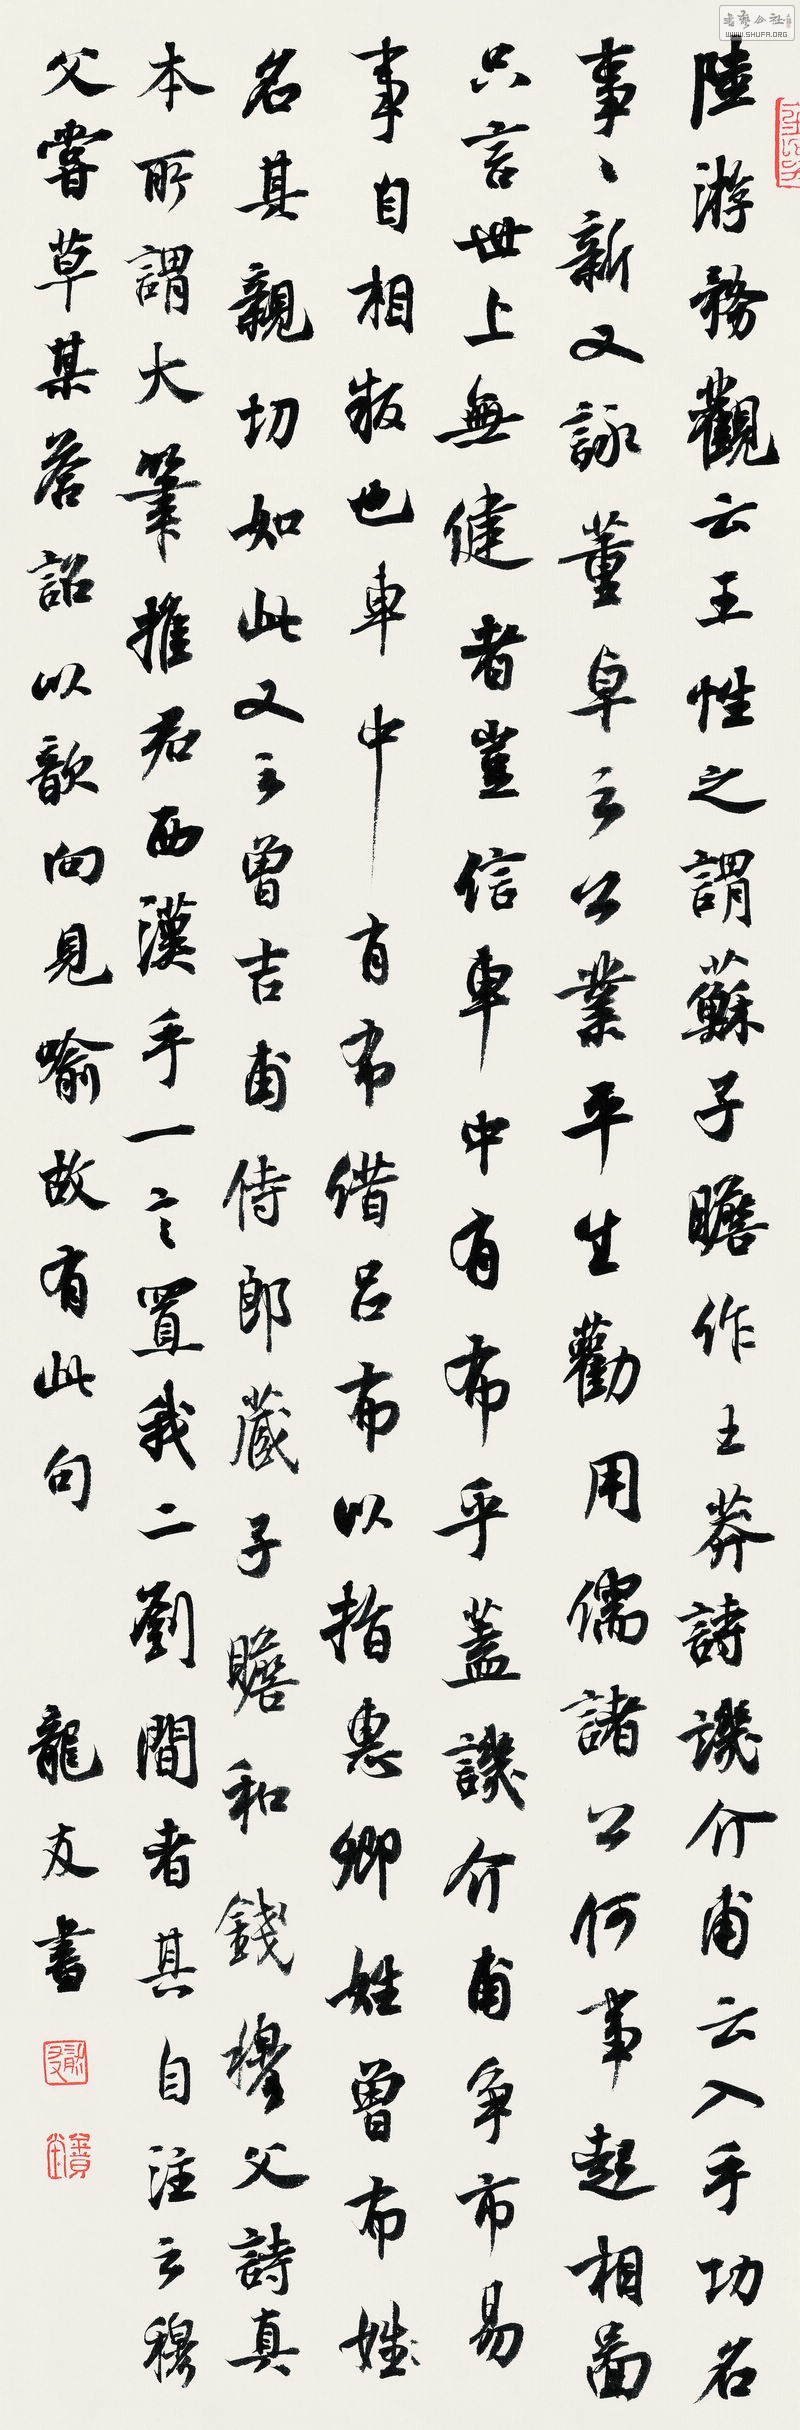 陸游務觀云王性之謂蘇子瞻作王莽詩譏介甫云入手功名
事〻新又詠董卓云公業平生勸用儒諸公何事起相圖
只言世上無健者豈信車中有布乎蓋譏介甫爭市易
事自相叛也車中有布借呂布以指惠卿姓曾布姓
名其親切如此又云曾吉甫侍郎藏子瞻和錢穆父詩真
本所謂大筆推君西漢手一言置我二劉間者其自注云穆
父嘗草某答詔以歆向見喻故有此句
龍友書
WWW.SHUFA.ORG